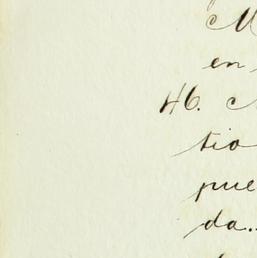 M
en
46. M
tio
pue
da..